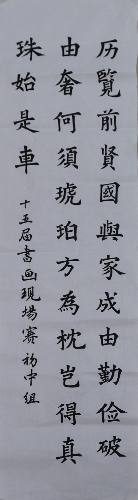 历覽前賢國與家成由勤儉破
由奢何須琥珀方為枕岂得真
珠始是車
十五届書画現場赛初中组